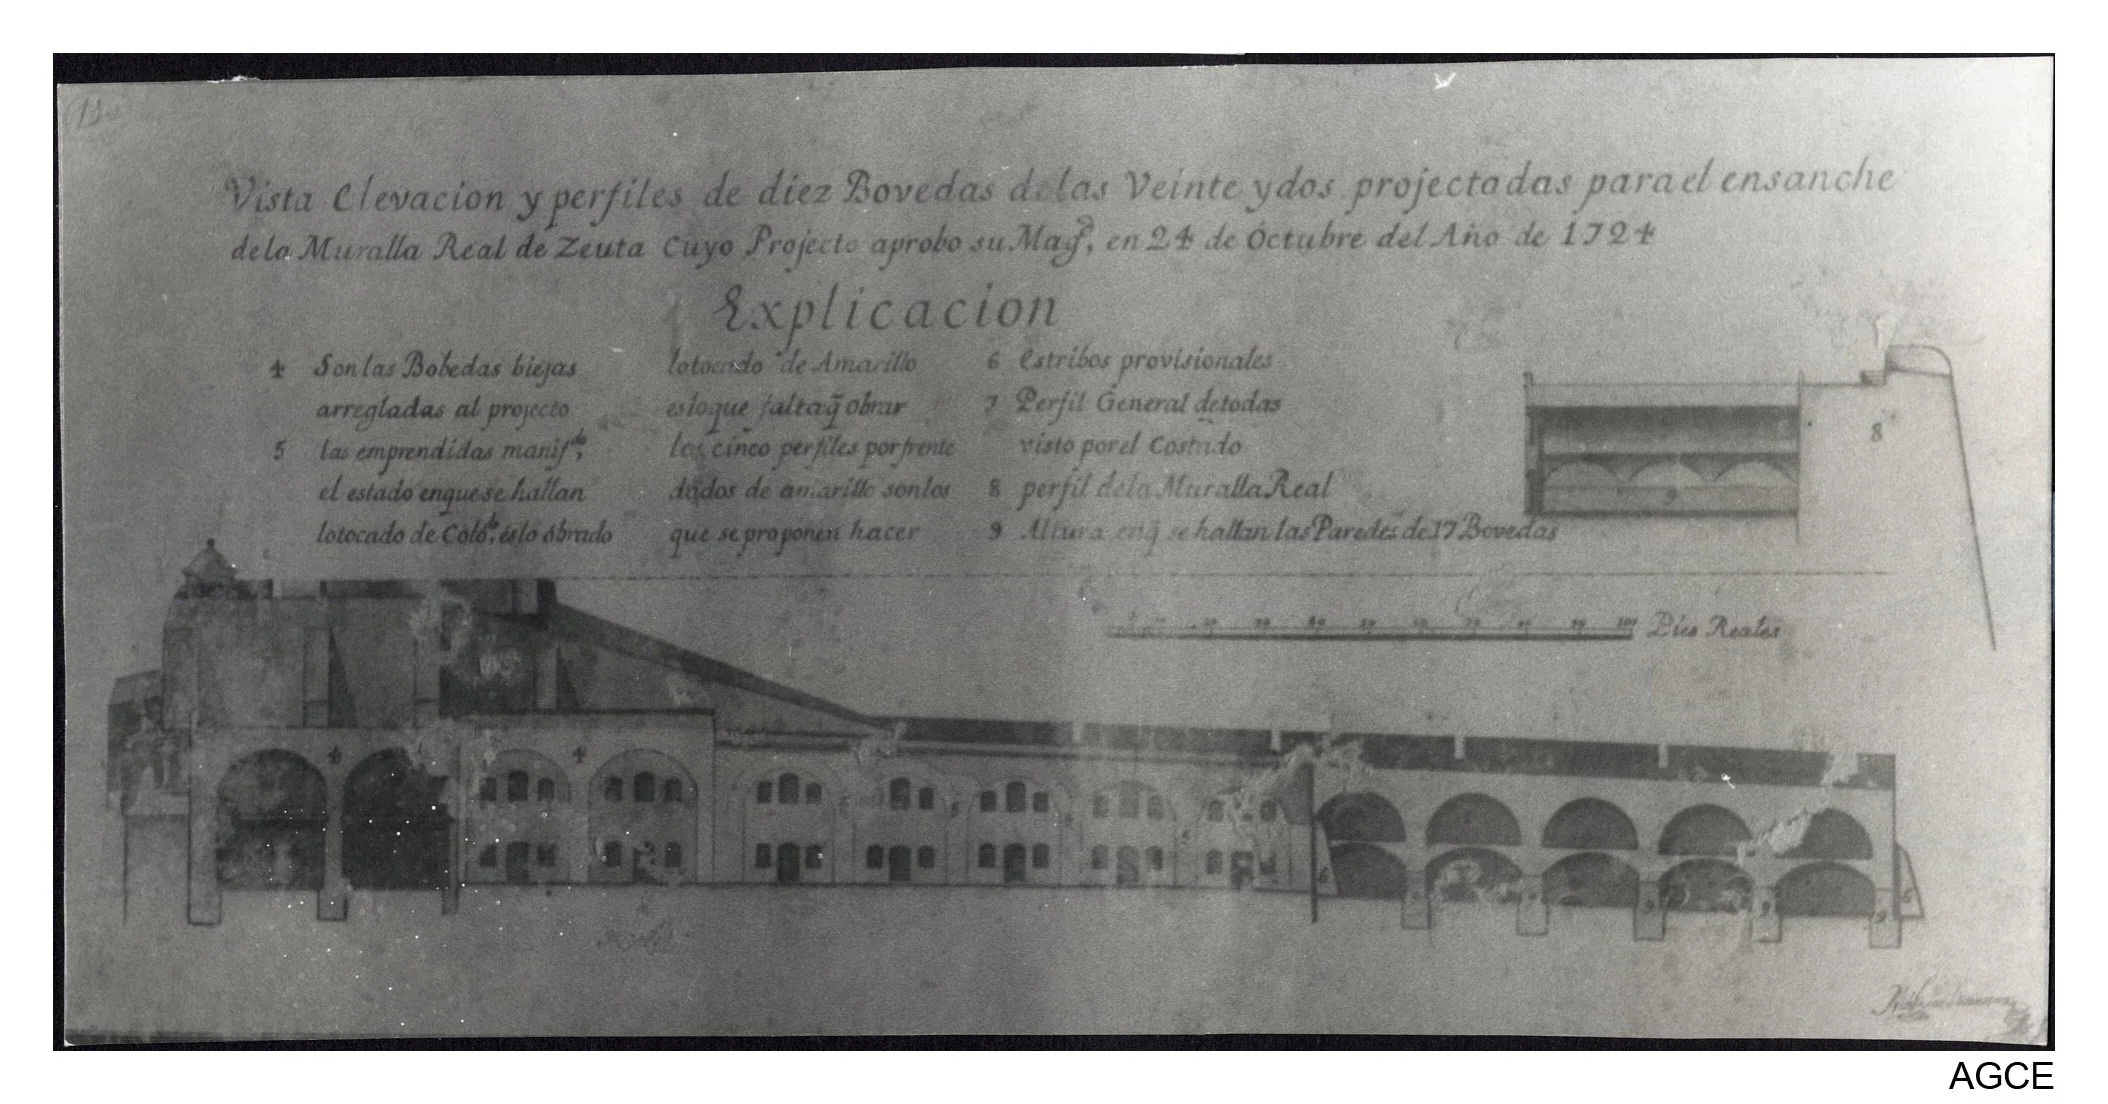 Vista Elevacion y perfiles de diez Bovedas de las Veinte y dos projectadas para el ensanche
de la Muralla Real de Zeuta Cuyo Projecto aprobo su Mag.d, en 24 de Octubre del Año de 1724
Explicacion
4 Son las Bobedas biejas
arregladas al projecto
5 las emprendidas manif.do,
el estado en que se hallan
lo tocado de Colo.do, es lo obrado
lo tocado de Amarillo
es lo que falta q̃ obrar
los cinco perfiles por frente
dados de amarillo son los
que se proponen hacer
6 Estribos provisionales
7 Perfil General de todas
visto por el Costado
8 perfil de la Muralla Real
9 Altura en q̃ se hallan las Paredes de 17 Bovedas
8
9
100 Pies Reales
4 4
5
6 9 9 9 9 6
AGCE